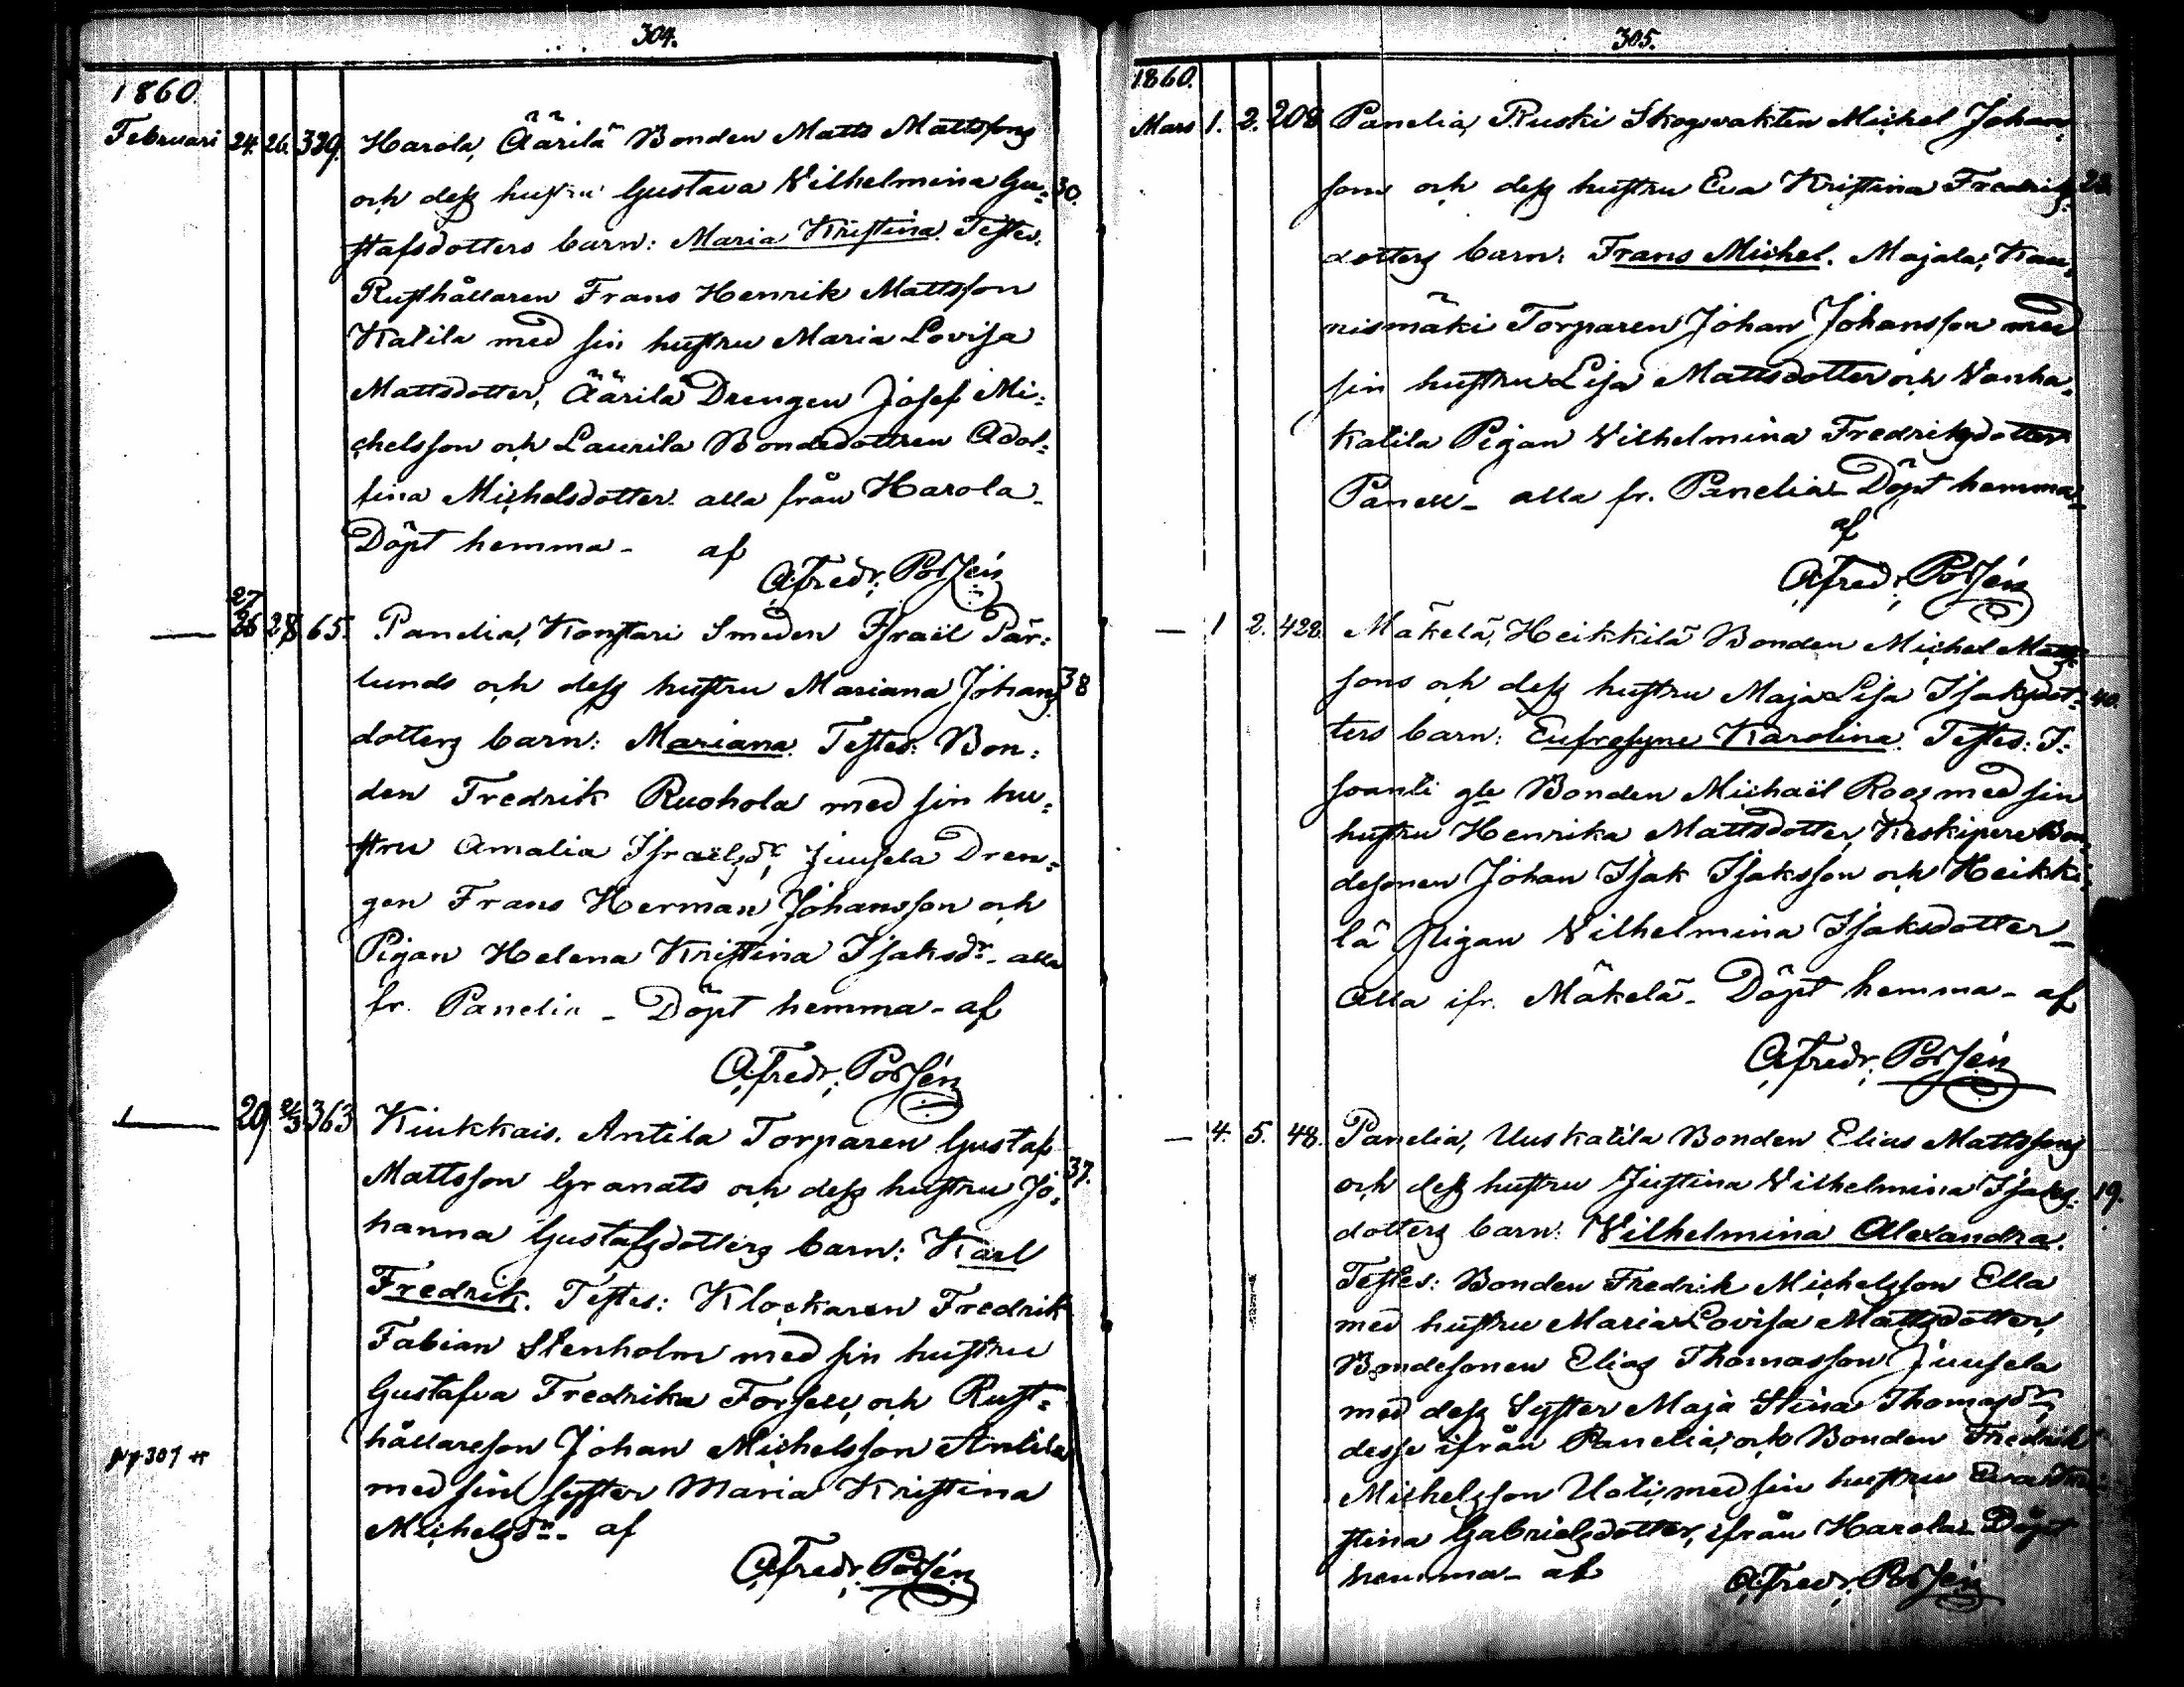 304.
1860.
Februari 24. 26. 329. Harola, Äärilä Bonden Matts Mattssons
och dess hustru Gustava Wilhelmina Gu= 30.
stafsdotters barn: Maria Kristina. Testes.
Rusthållaren Frans Henrik Mattsson
Katila med sin hustru Maria Lovisa
Mattsdotter, Äärilä Drengen Josef Mi=
chelsson och Laurila Bondedottren Adol=
fina Michelsdotter. alla från Harola-
Döpt hemma- af
A. Fredr. Polsén
27
— 26 28 65. Panelia, Konstari Smeden Israël Pär=
lunds och dess hustru Mariana Johans 38
dotters barn: Mariana. Testes: Bon=
den Fredrik Ruohola med sin hu=
stru Amalia Israëlsdr, Juusela Dren=
gen Frans Herman Johansson och
Pigan Helena Kristina Isaksdr- alla
fr. Panelia - Döpt hemma - af
A. Fredr. Polsén
— 29. 2/3 363 Kiukkais. Antila Torparen Gustaf
Mattsson Granats och dess hustru Jo= 37.
hanna Gustafsdotters barn: Karl
Fredrik. Testes: Klockaren Fredrik
Fabian Stenholm med sin hustru
Gustafva Fredrika Forsell, och Rust=
hållareson Johan Michelsson Antila
med sin syster Maria Kristina
Michelsdr.- af
A. Fredr. Polsén
305.
1860.
Mars 1. 2. 208 Panelia, Ruski Skogsvakten Michel Johan=
sons och dess hustru Eva Kristina Fredriks= 28.
dotters barn: Frans Michel. Majala, Kau=
nismäki Torparen Johan Johansson med
sin hustru Lisa Mattsdotter och Vanha=
katila Pigan Wilhelmina Fredriksdotter
Panell- alla fr. Panelia- Döpt hemma-
af
A. Fredr. Polsén
— 1 2. 428. Mäkelä, Heikkilä Bonden Michel Matts=
sons och dess hustru Maja Lisa Isaksdot= 40.
ters barn: Eufrosyne Karolina. Testes: I=
soanti gle Bonden Michaël Roos med sin
hustru Henrika Mattsdotter, Keskipere Bon=
desonen Johan Isak Isaksson och Heikki=
lä Pigan Wilhelmina Isaksdotter-
Alla ifr. Mäkelä- Döpt hemma- af
A. Fredr. Polsén
— 4. 5. 48. Panelia, Uuskatila Bonden Elias Mattssons
och dess hustru Justina Wilhelmina Isaks= 19.
dotters barn: Wilhelmina Alexandra.
Testes: Bonden Fredrik Michelsson Ella
med hustru Maria Lovisa Mattsdotter,
Bondesonen Elias Thomasson Juusela
med dess Syster Maja Stina Thomasdr,
desse ifrån Panelia, och Bonden Fredrik
Michelsson Uoti, med sin hustru Eva Kri=
stina Gabrielsdotter, ifrån Harola- Döpt
hemma- af A. Fredr. Polsén